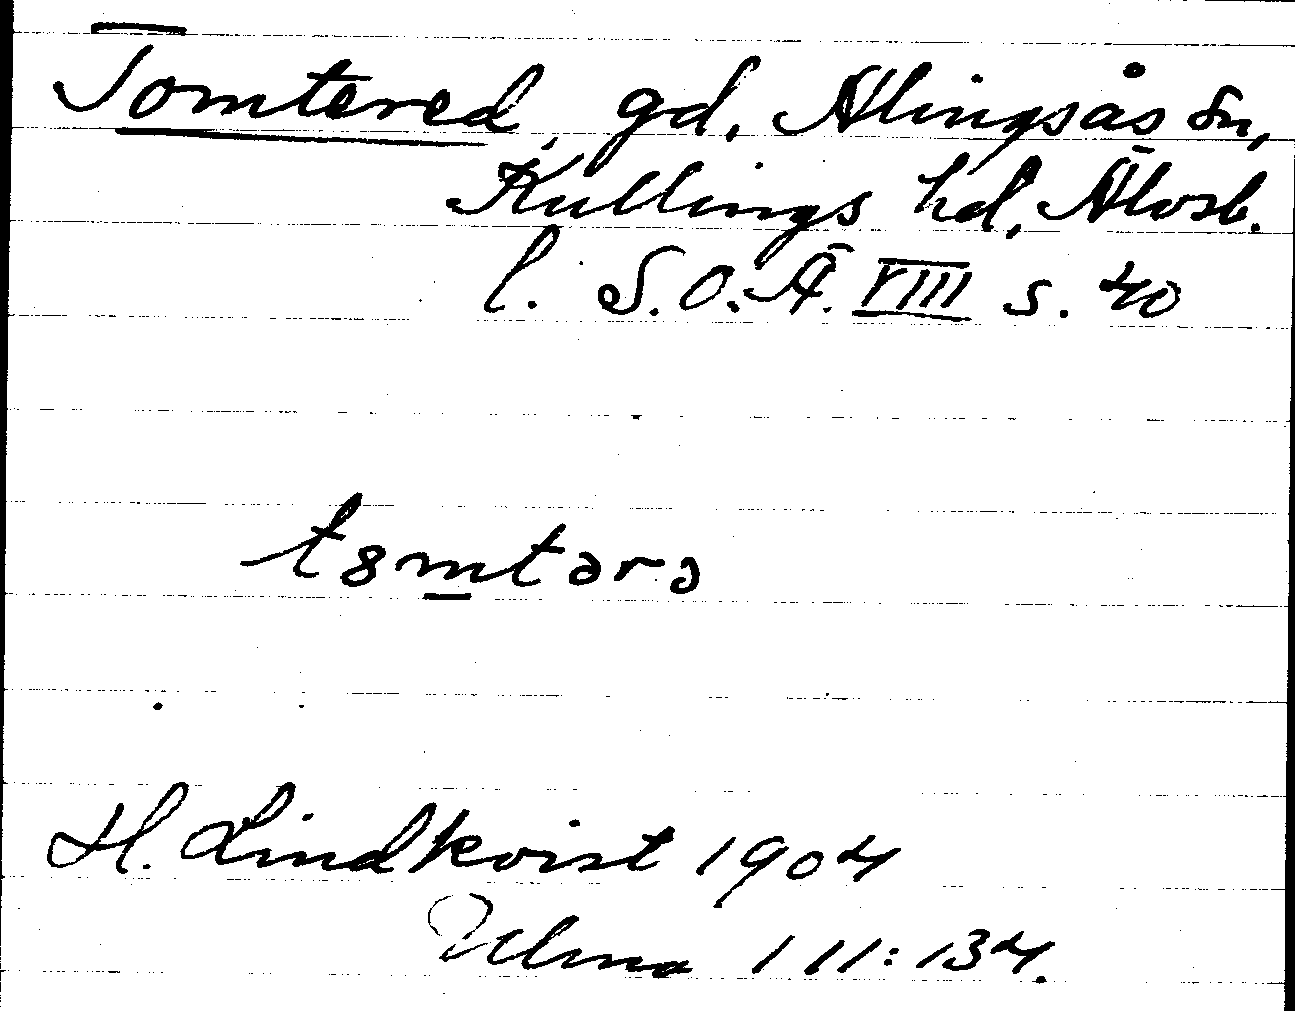 Tomtered, gd, Alingsås sn,
Kullings hd, Älvsb.
l. S.O.Ä. VIII s. 40
t8mtərə
H. Lindkvist 1904
Ulma 111:134.